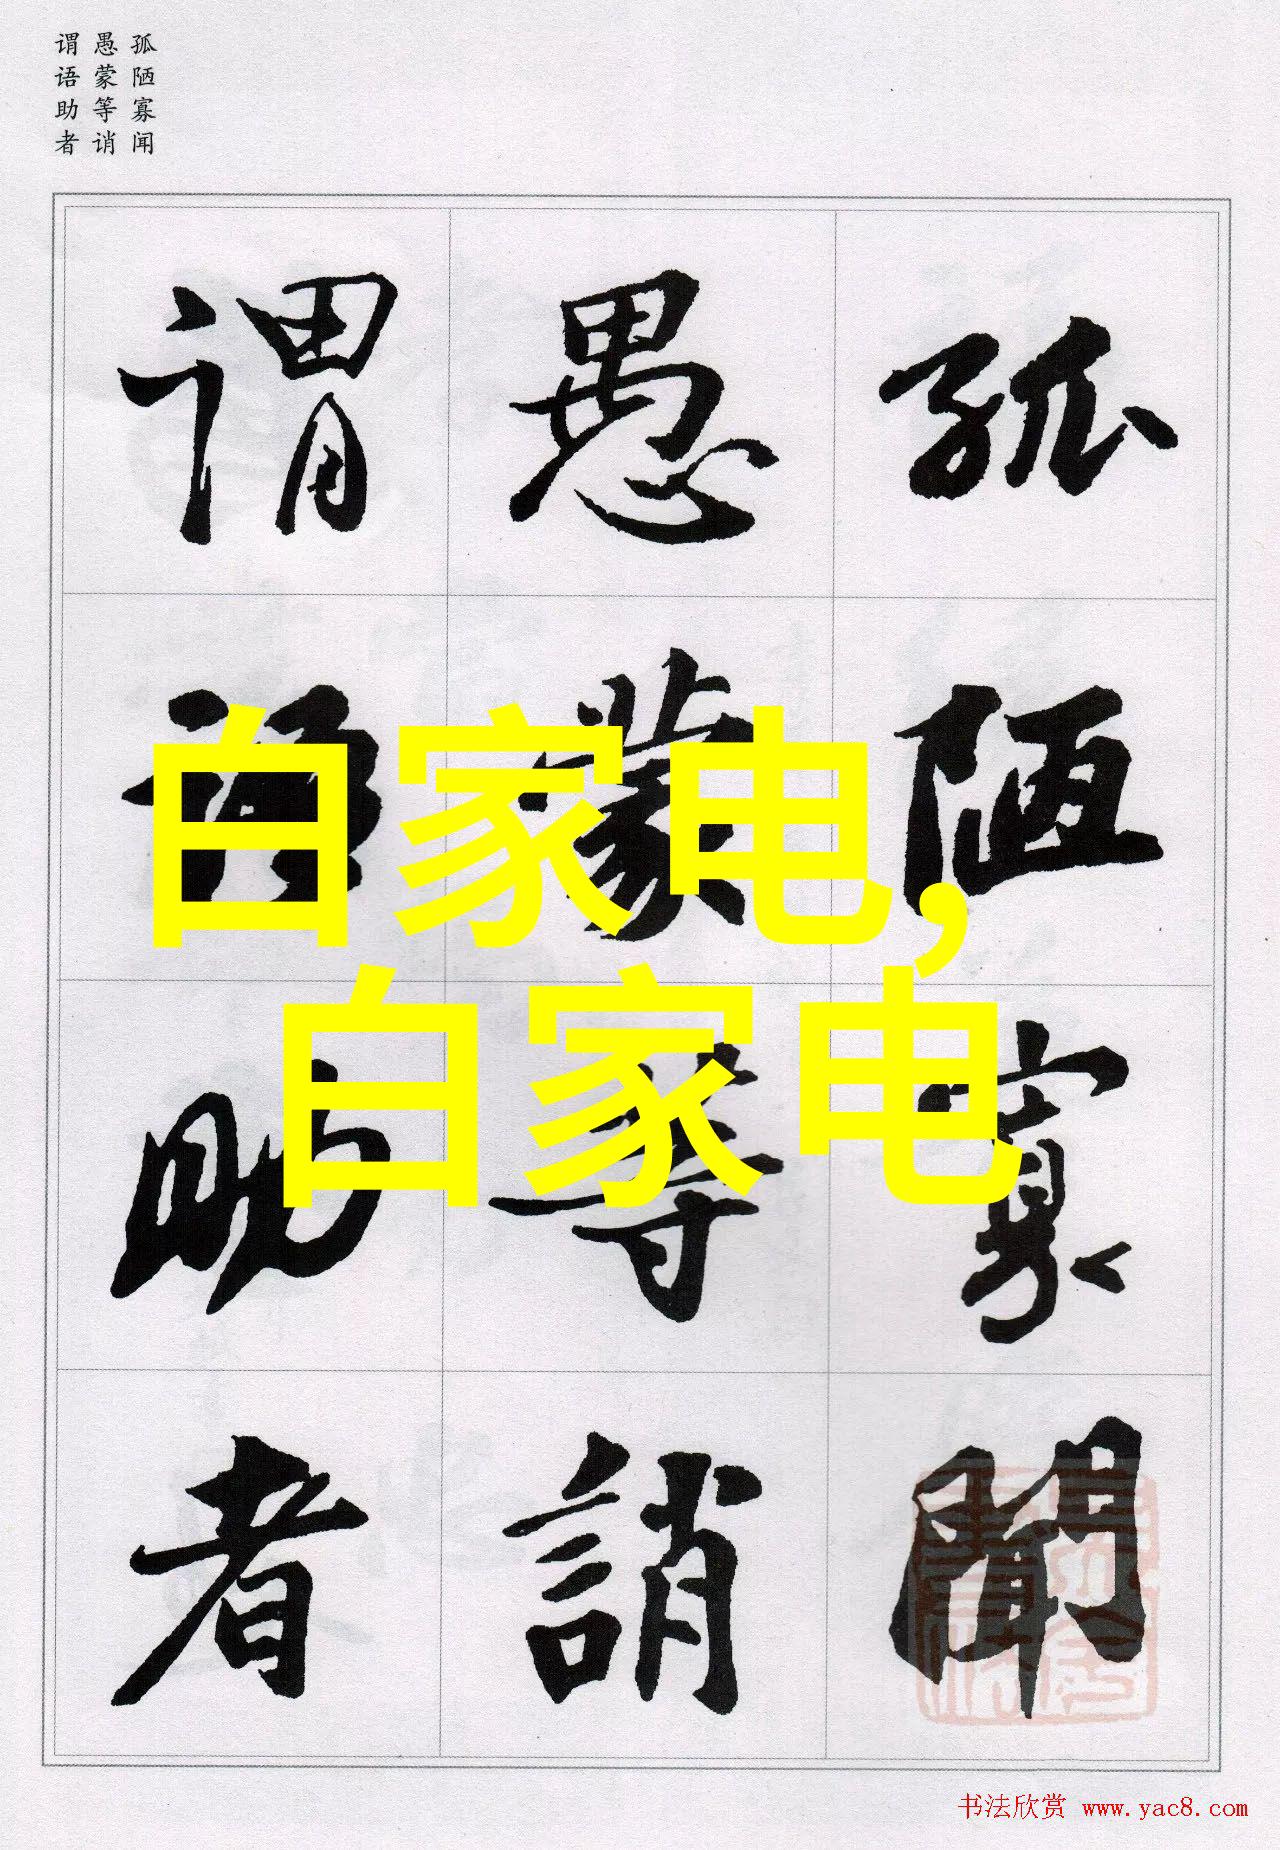 孤陋寡闻
愚蒙等诮
谓语助者
孤陋寡聞
愚蒙等誚
谓语助者
白家电，
白家电
书法欣赏 www.yac8.com